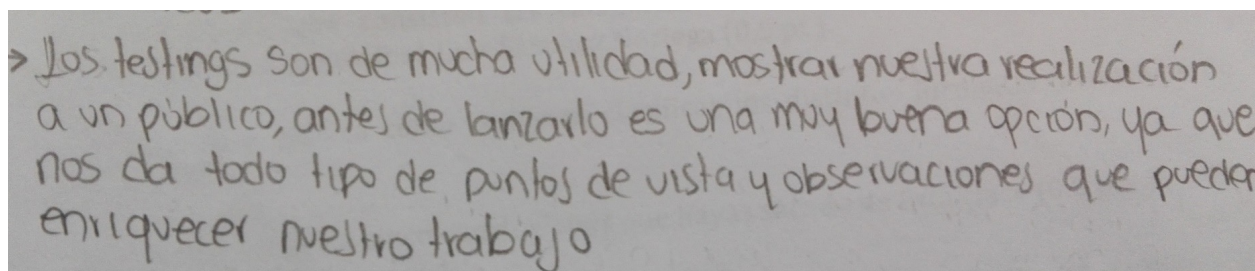 → Los testings son de mucha utilidad, mostrar nuestra realización
a un público, antes de lanzarlo es una muy buena opción, ya que
nos da todo tipo de puntos de vista y observaciones que pueden
enriquecer nuestro trabajo